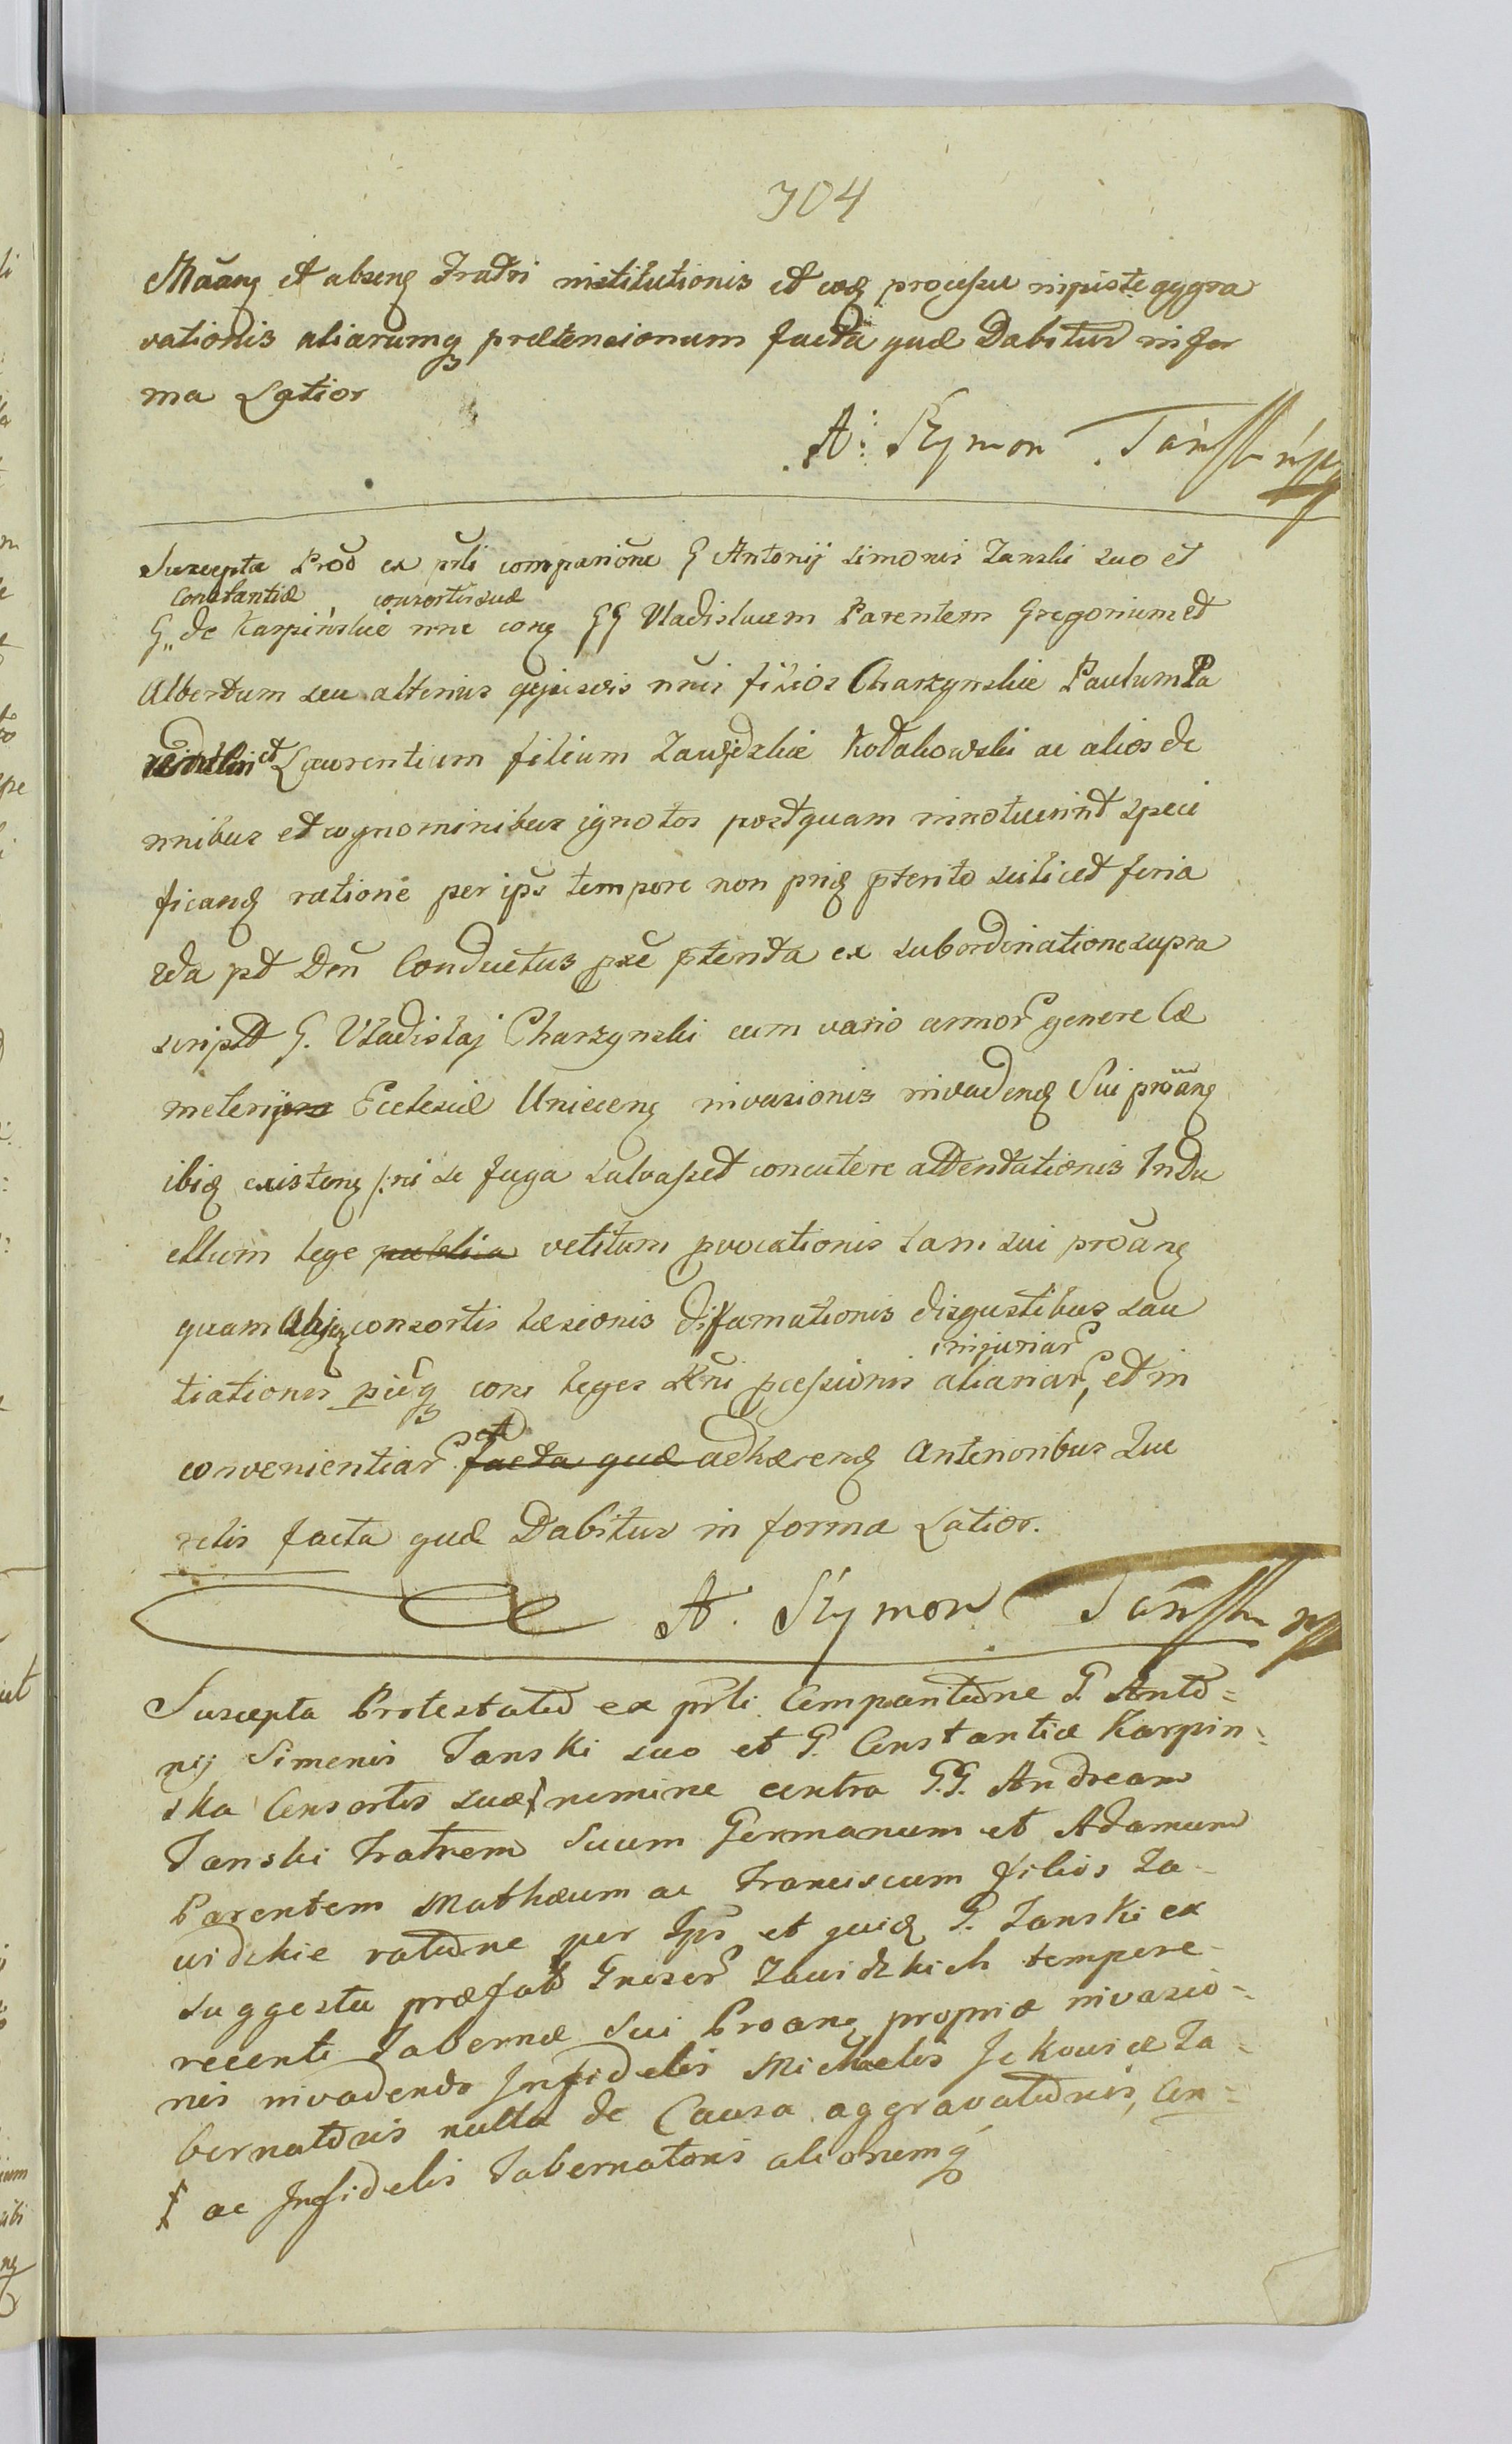 304
Mãang et absenq Fratri institutionis et eodq processu injuste aggra
vationis aliarumq prætensionum facta quæ Dabitur in for
ma Latior
A: Szymon Tański mp
Suscepta Prõõ ex pñli compariõne G Antonij Simonis Zanski suo et
Constantiæ consortis suæ
G,, de Karpińskie nne conq GG Vladislaum Parentem Gregorium et
Albertum seu alterius ejusvis nñis filios Charzynskie Paulum Pa
rentem et Laurentium filium Zawidzkie Kołakowski ac alios de
nnibus et cognominibus ignotos postquam innotuerint speci
ficandq ratione per ipś tempore non priq pterito scilicet feria
2da pt Dẽn Conductus pxẽ pterita ex subordinatione supra
script G. Vladislaj Charzynski cum vario armor genere Cæ
meterij Ecclesiæ Unieceng invasionis invadendq Sui proãng
ibiq existenq /:ni se fuga salvasset concutere attentationis In du
ellum lege publica vetitum pvocationis tam sui proãng
quam consortis læsionis diffamationis disgustibus sau
injuriar
tiationis piẽq con leges Rñi pcessionis aliariar, et in
convenientiar et facta quæ adhærendq anterioribus Que
relis facta quæ Dabitur in forma Latior.
A. Szymon Tański mp
Suscepta Protestatio ex pñli Comparitione G. Anto=
nij Simonis Tanski suo et G. Constantiæ Karpin=
ska Consortis suæ nomine contra G.G. Andream
Tanski Fratrem Suum Germanum et Adamum
Parentem Mathæum ac Franciscum filios Za-
widzkie ratione per Ipś et quiq G. Tanski ex
suggestu præfat Gneser Zawidzkich tempore-
recenti Tabernæ Sui Proanq propriæ invasio-
nis invadendo Infidelis Michaelis Jckowicz Ta=
bernatoris nulla de Causa aggravationis, Con=
ƒ ac Infidelis Tabernatoris aliorumq